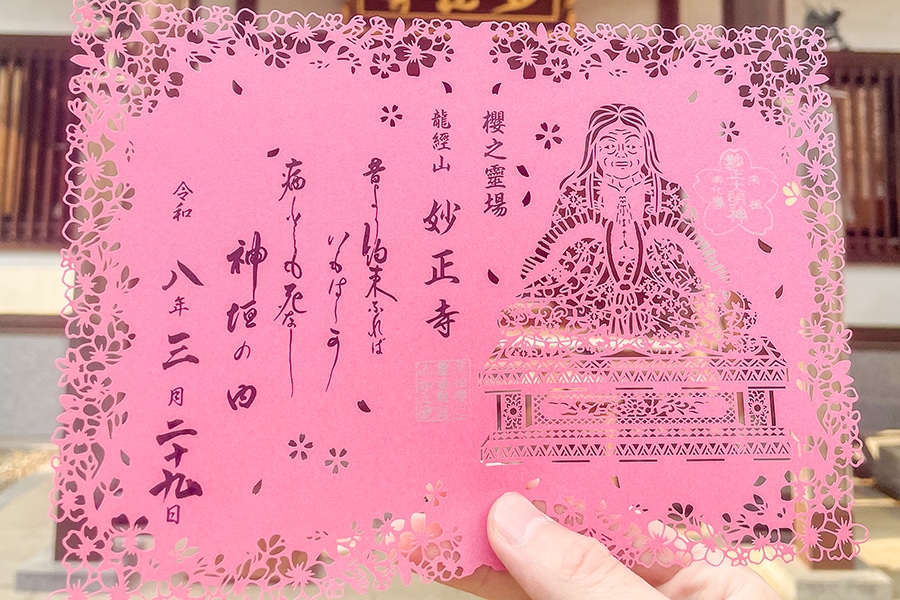 櫻之靈場
龍經山 妙正寺
昔より約束なれば
いもはしか
病とも死なし
神垣の内
令和八年三月二十九日